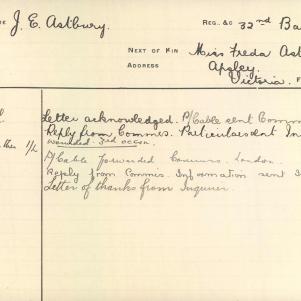 J. E. Astbury.
REG. &c 32nd Ba
NEXT OF KIN Miss Freda Ast
ADDRESS Apsley,
Victoria.
Letter acknowledged. P/Cable sent Comm
Reply from Commis. Particulars sent In
wounded 3rd occon.
P/Cable forwarded Commrs. London.
Reply from Commis. Information sent
Letter of thanks from Inquirer.